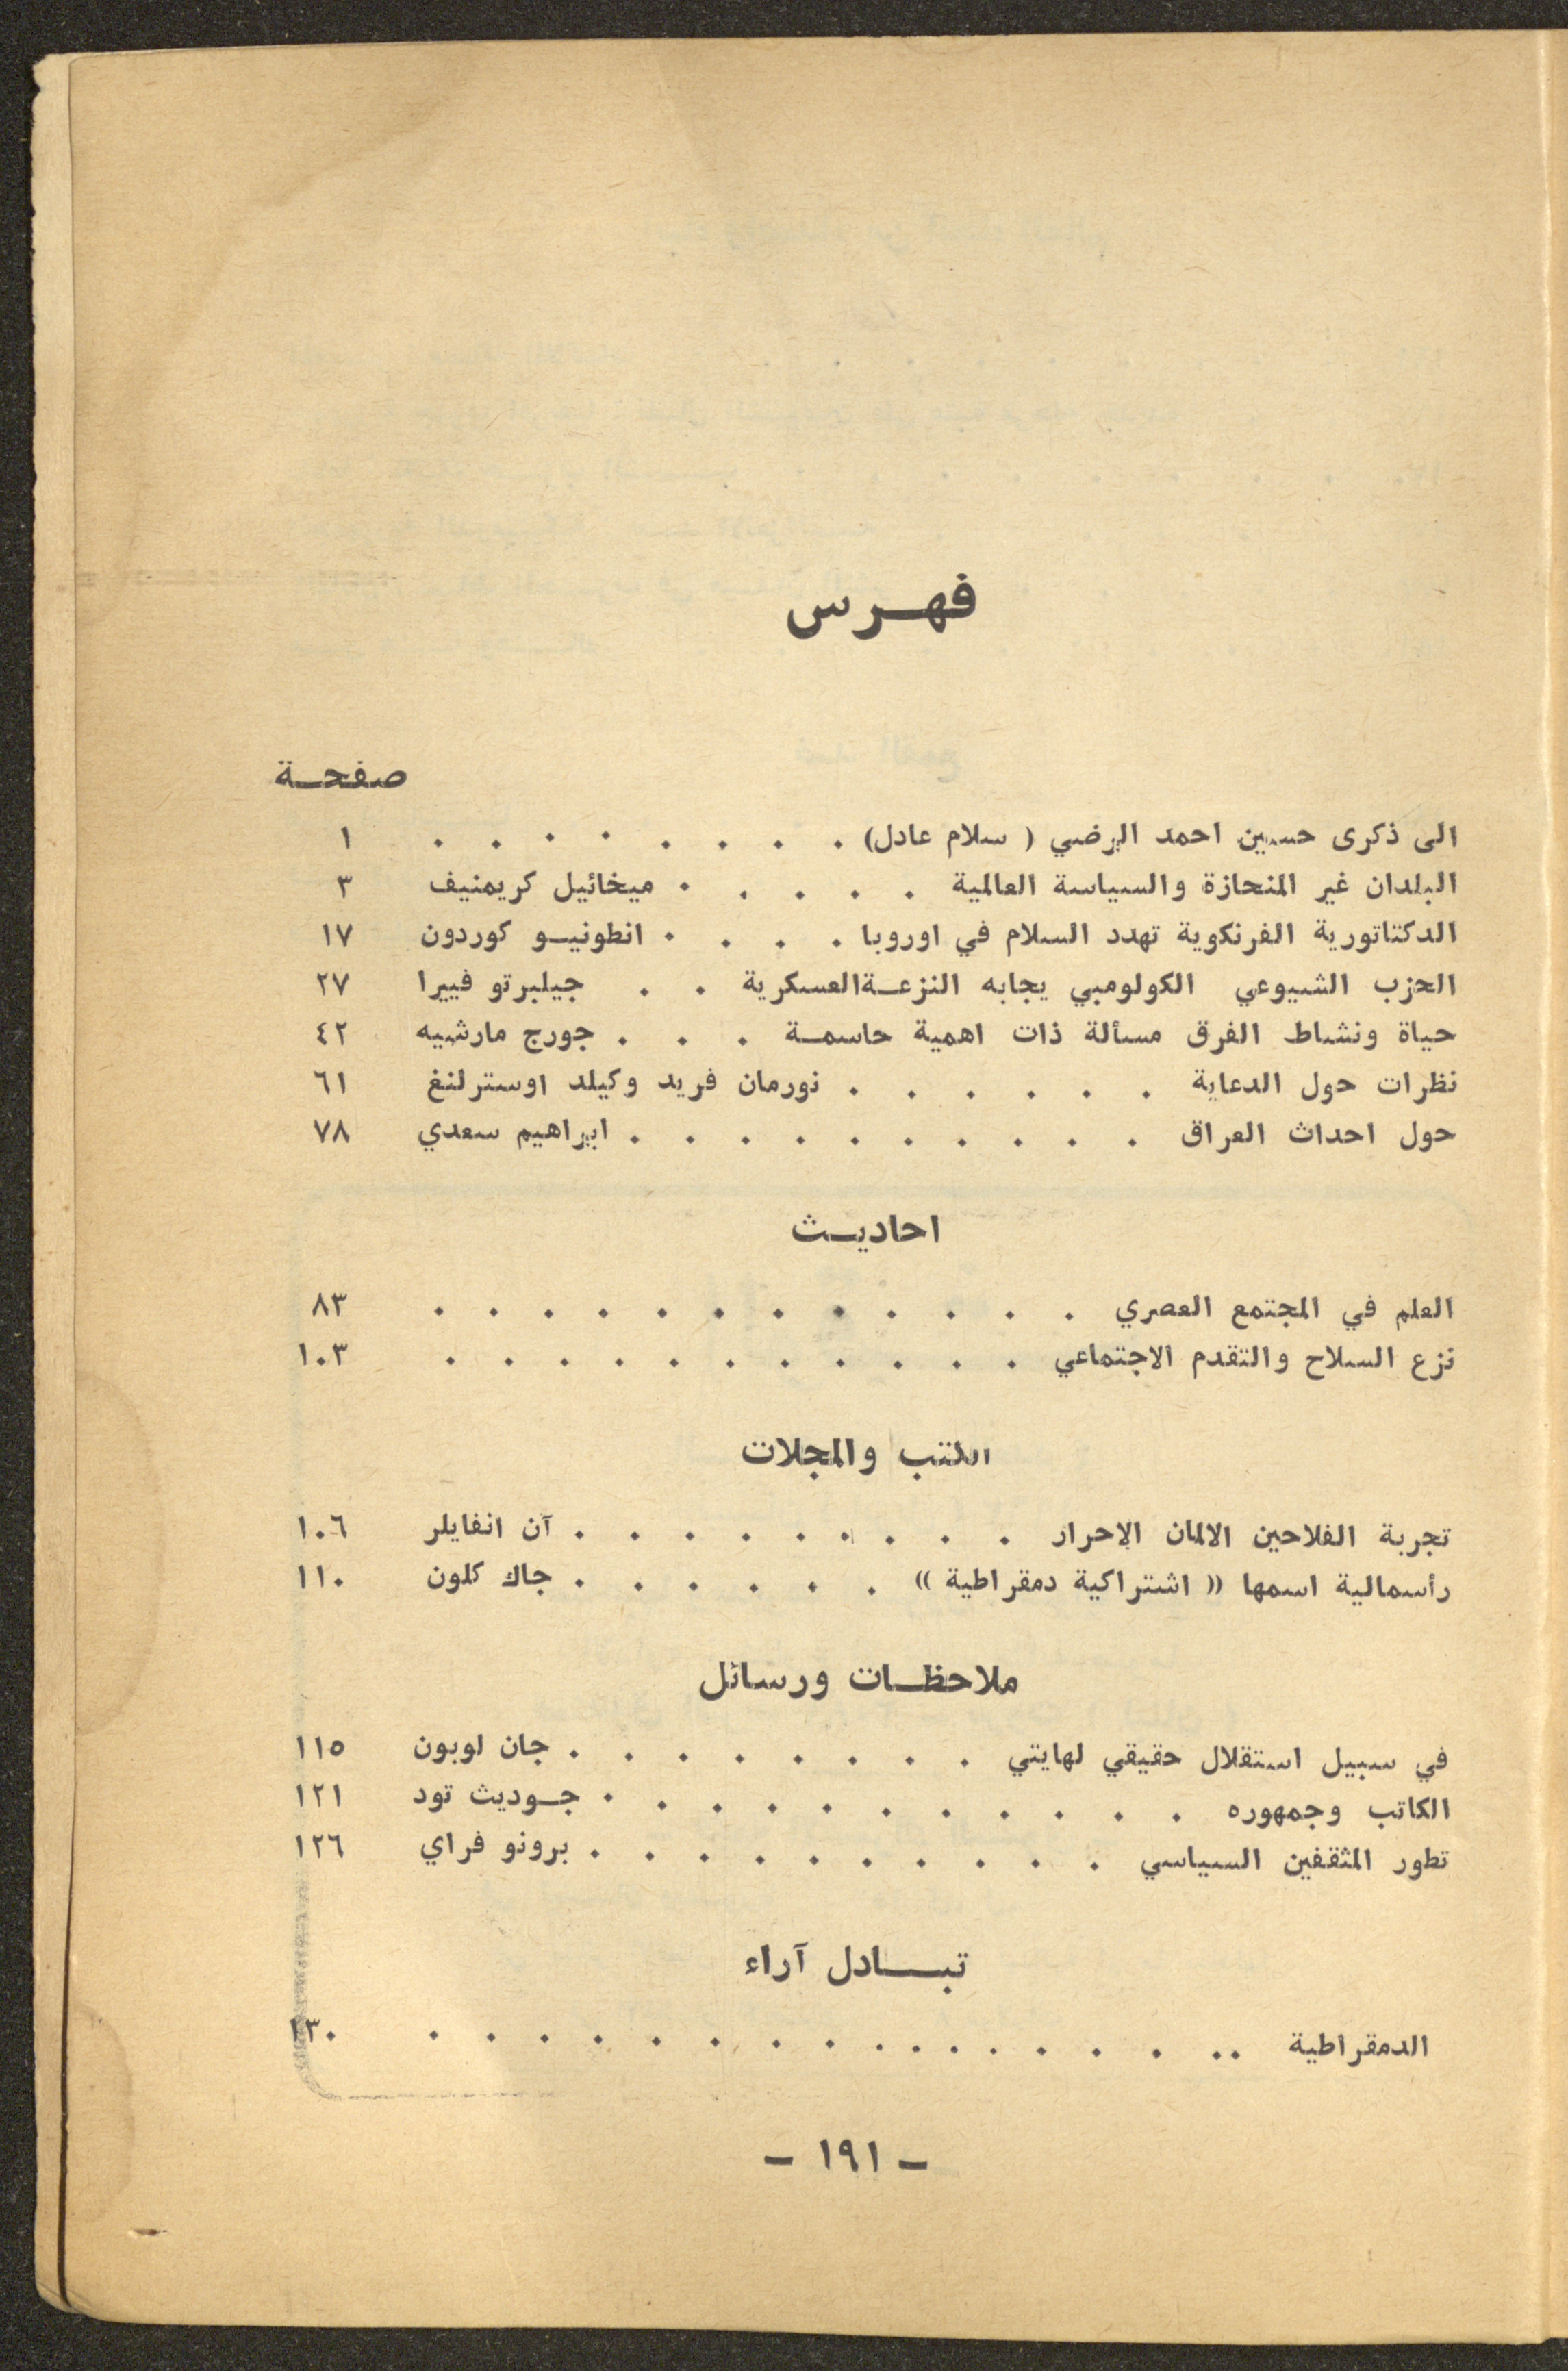 فهرس
صفحة
الى ذكرى حسين احمد الرضي ( سلام عادل) . . . . . . . . ١
البلدان غير المنحازة والسياسة العالمية . . . . . ميخائيل كريمنيف ٣
الدكتاتورية الفرنكوية تهدد السلام في اوروبا . . . . انطونيو كوردون ١٧
الحزب الشيوعي الكولومبي يجابه النزعة العسكرية . . جيلبرتو فييرا ٢٧
حياة ونشاط الفرق مسألة ذات اهمية حاسمة . . . جورج مارشيه ٤٢
نظرات حول الدعاية . . . . . . نورمان فريد وكيلد اوسترلنغ ٦١
حول احداث العراق . . . . . . . . . . ابراهيم سعدي ٧٨
احاديث
العلم في المجتمع العصري . . . . . . . . . . . . ٨٣
نزع السلاح والتقدم الاجتماعي . . . . . . . . . . . ١٠٣
الكتب والمجلات
تجربة الفلاحين الالمان الاحرار . . . . . . . . . آن انفايلر ١٠٦
رأسمالية اسمها « اشتراكية دمقراطية » . . . . . . جاك كلون ١١٠
ملاحظات ورسائل
في سبيل استقلال حقيقي لهايتي . . . . . . . . جان لوبون ١١٥
الكاتب وجمهوره . . . . . . . . . . . جوديث تود ١٢١
تطور المثقفين السياسي . . . . . . . . . . برونو فراي ١٢٦
تبادل آراء
الدمقراطية . . . . . . . . . . . . . . . . . ١٣٠
– ١٩١ –